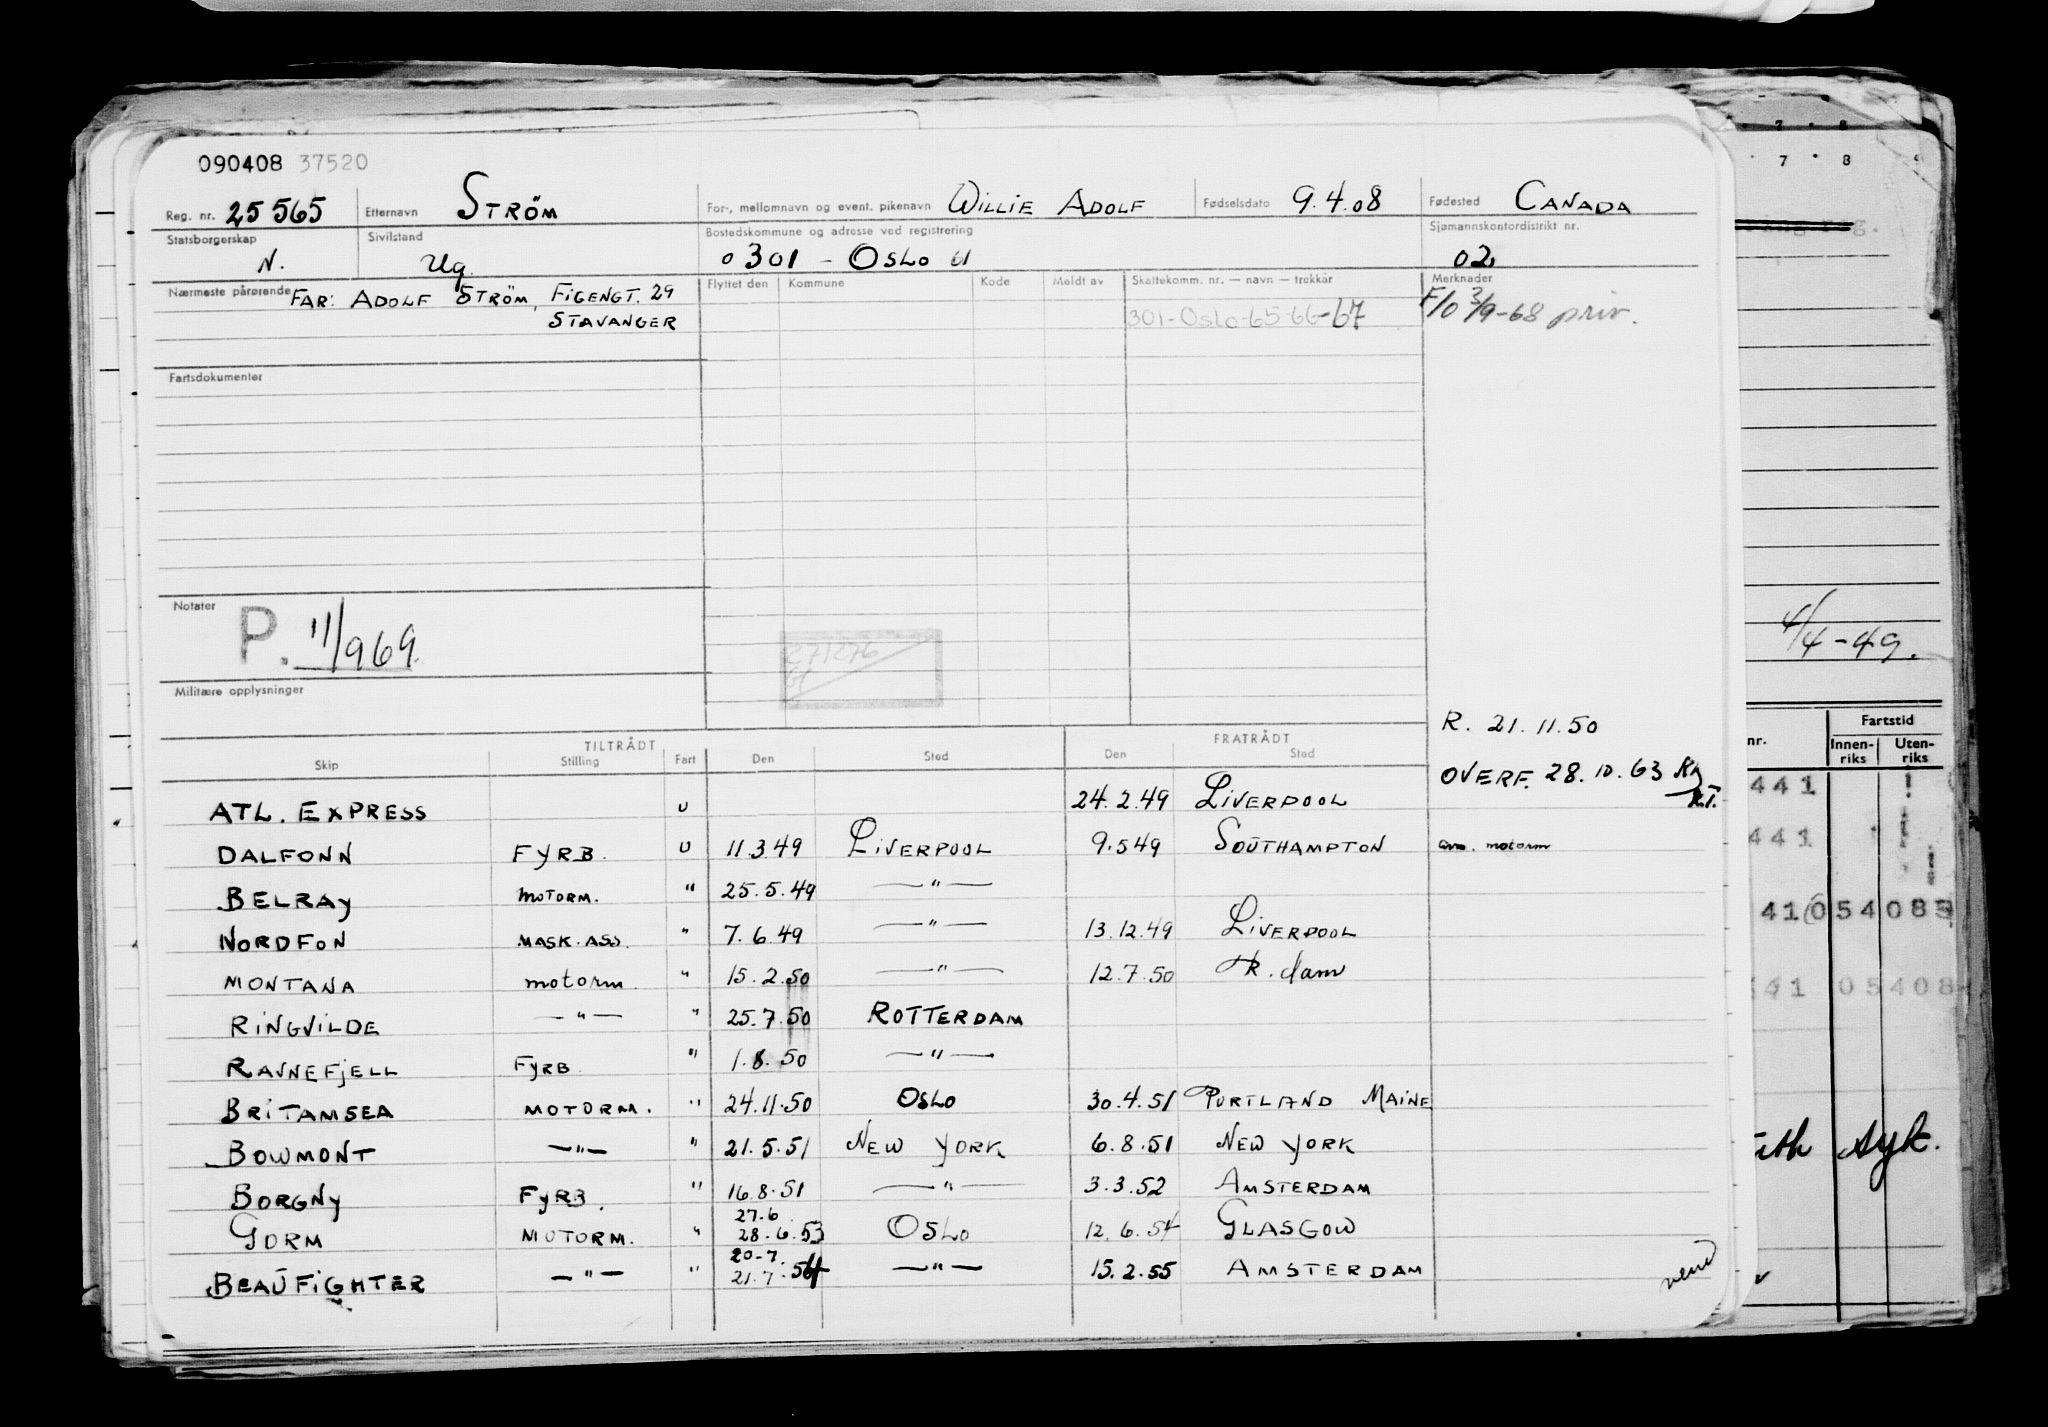 090408 37520
Reg. nr. 25565 Etternavn STRÖM For-, mellomnavn og event. pikenavn WILLIE ADOLF Fødselsdato 9.4.08 Fødested CANADA
Statsborgerskap N. Sivilstand Ug. Bostedskommune og adresse ved registrering 0301 - OSLO Sjømannskontordistrikt nr. 02
Nærmeste pårørende FAR: ADOLF STRÖM, FIGENGT. 29 Flyttet den Kommune Kode Meldt av Skattekomm. nr. — navn — trekkår Merknader
STAVANGER 301-Oslo-65-66-67 F/O 3/9-68 priv.
Fartsdokumenter
Notater P. 11/969.
4/4-49.
Militære opplysninger
R. 21.11.50
nr. Fartstid
Innen-riks Uten-riks
TILTRÅDT FRATRÅDT
Skip Stilling Fart Den Sted Den Sted
OVERF. 28.10.63
ATL. EXPRESS U 24.2.49 LIVERPOOL 441
DALFONN FYRB. U 11.3.49 LIVERPOOL 9.5.49 SOUTHAMPTON motorm 441
BELRAY MOTORM. " 25.5.49 —"—
NORDFON MASK.ASS. " 7.6.49 —"— 13.12.49 LIVERPOOL
MONTANA motorm. " 15.2.50 —"— 12.7.50 R.dam
RINGVILDE —"— " 25.7.50 ROTTERDAM
RAVNEFJELL FYRB " 1.8.50 —"—
BRITAMSEA MOTORM. " 24.11.50 OSLO 30.4.51 PORTLAND MAINE
BOWMONT —"— " 21.5.51 NEW YORK 6.8.51 NEW YORK
BORGNY FYRB. " 16.8.51 —"— 3.3.52 AMSTERDAM
27.6
GORM MOTORM. " 28.6.53 OSLO 12.6.54 GLASGOW
20-7
BEAUFIGHTER —"— " 21.7.54 —"— 15.2.55 AMSTERDAM
vend